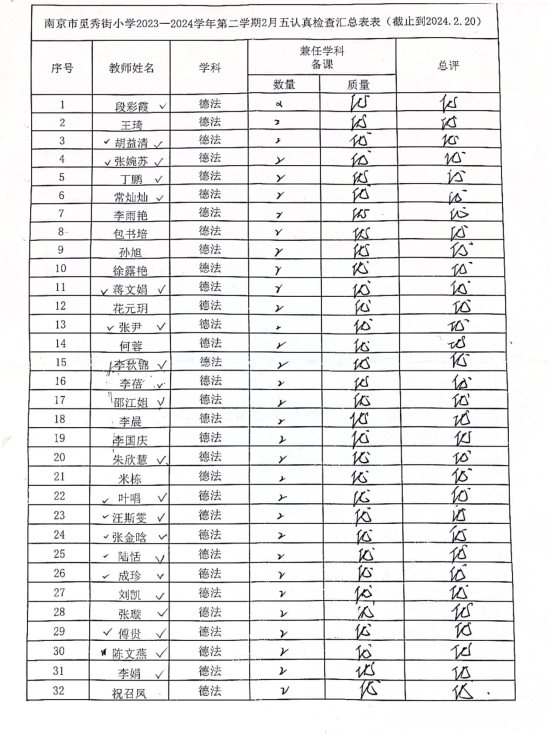 南京市觅秀街小学2023—2024学年第二学期2月五认真检查汇总表表（截止到2024.2.20）
序号 教师姓名 学科 兼任学科备课 总评
数量 质量
1 段彩霞 ✓ 德法 2 优 优
2 王琦 德法 2 优 优
3 ✓ 胡益清 ✓ 德法 2 优 优
4 ✓ 张婉苏 ✓ 德法 2 优 优
5 丁鹏 ✓ 德法 2 优 优
6 常灿灿 ✓ 德法 2 优 优
7 李雨艳 德法 2 优 优
8 包书培 德法 2 优 优
9 孙旭 德法 2 优 优
10 徐露艳 德法 2 优 优
11 ✓ 蒋文娟 ✓ 德法 2 优 优
12 花元玥 德法 2 优 优
13 ✓ 张尹 ✓ 德法 2 优 优
14 何蓉 德法 2 优 优
15 李秋锦 ✓ 德法 2 优 优
16 李蓓 ✓ 德法 2 优 优
17 ✓ 邵江姐 ✓ 德法 2 优 优
18 李晨 德法 2 优 优
19 李国庆 德法 2 优 优
20 朱欣慧 ✓ 德法 2 优 优
21 米栋 德法 2 优 优
22 ✓ 叶唱 ✓ 德法 2 优 优
23 ✓ 汪斯雯 ✓ 德法 2 优 优
24 ✓ 张金晗 ✓ 德法 2 优 优
25 ✓ 陆恬 ✓ 德法 2 优 优
26 ✓ 成珍 ✓ 德法 2 优 优
27 刘凯 ✓ 德法 2 优 优
28 张璇 ✓ 德法 2 优 优
29 ✓ 傅贵 ✓ 德法 2 优 优
30 陈文燕 ✓ 德法 2 优 优
31 李娟 ✓ 德法 2 优 优
32 祝召凤 德法 2 优 优